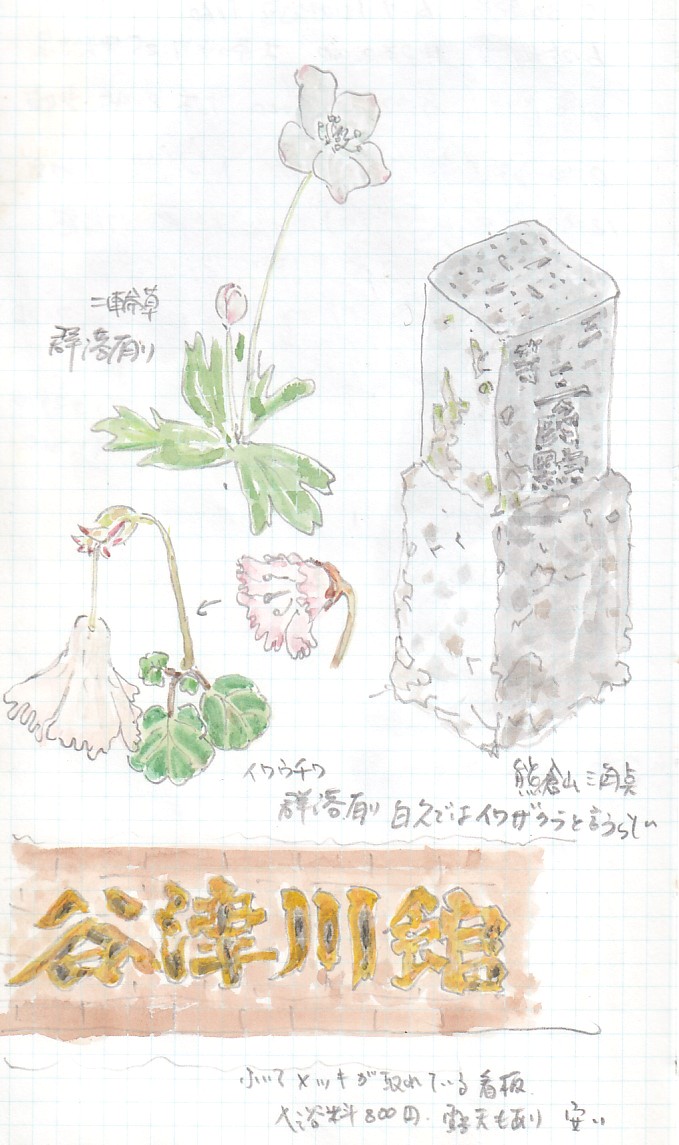 二輪草
群落有り
三等
三角點
イワウチワ
熊倉山 三角点
群落有り 白久ではイワザクラと言うらしい
谷津川館
メッキが取れている看板
入浴料800円. 露天もあり 安い